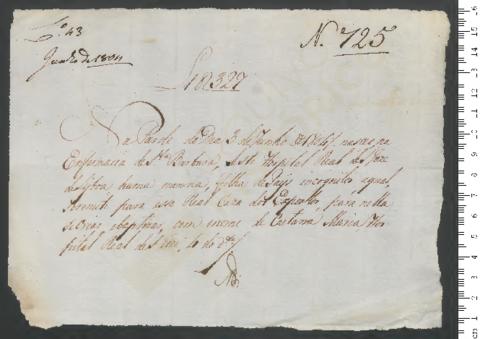 Nº 725
Junho de 1804
L 10 327
Na Tarde do Dia 3 de Junho de 1804, nasceo na
Enfermaria de Sta Barbara, deste Hospital Real de S. Joze
de Lisboa huma menina, filha de Pays incognitos aqual
Remeti para essa Real Caza dos Expostos, para nella
se criar, ebaptizar, com nome de Caetana Maria Hos
pital Real de S. Joze, 4 do dº